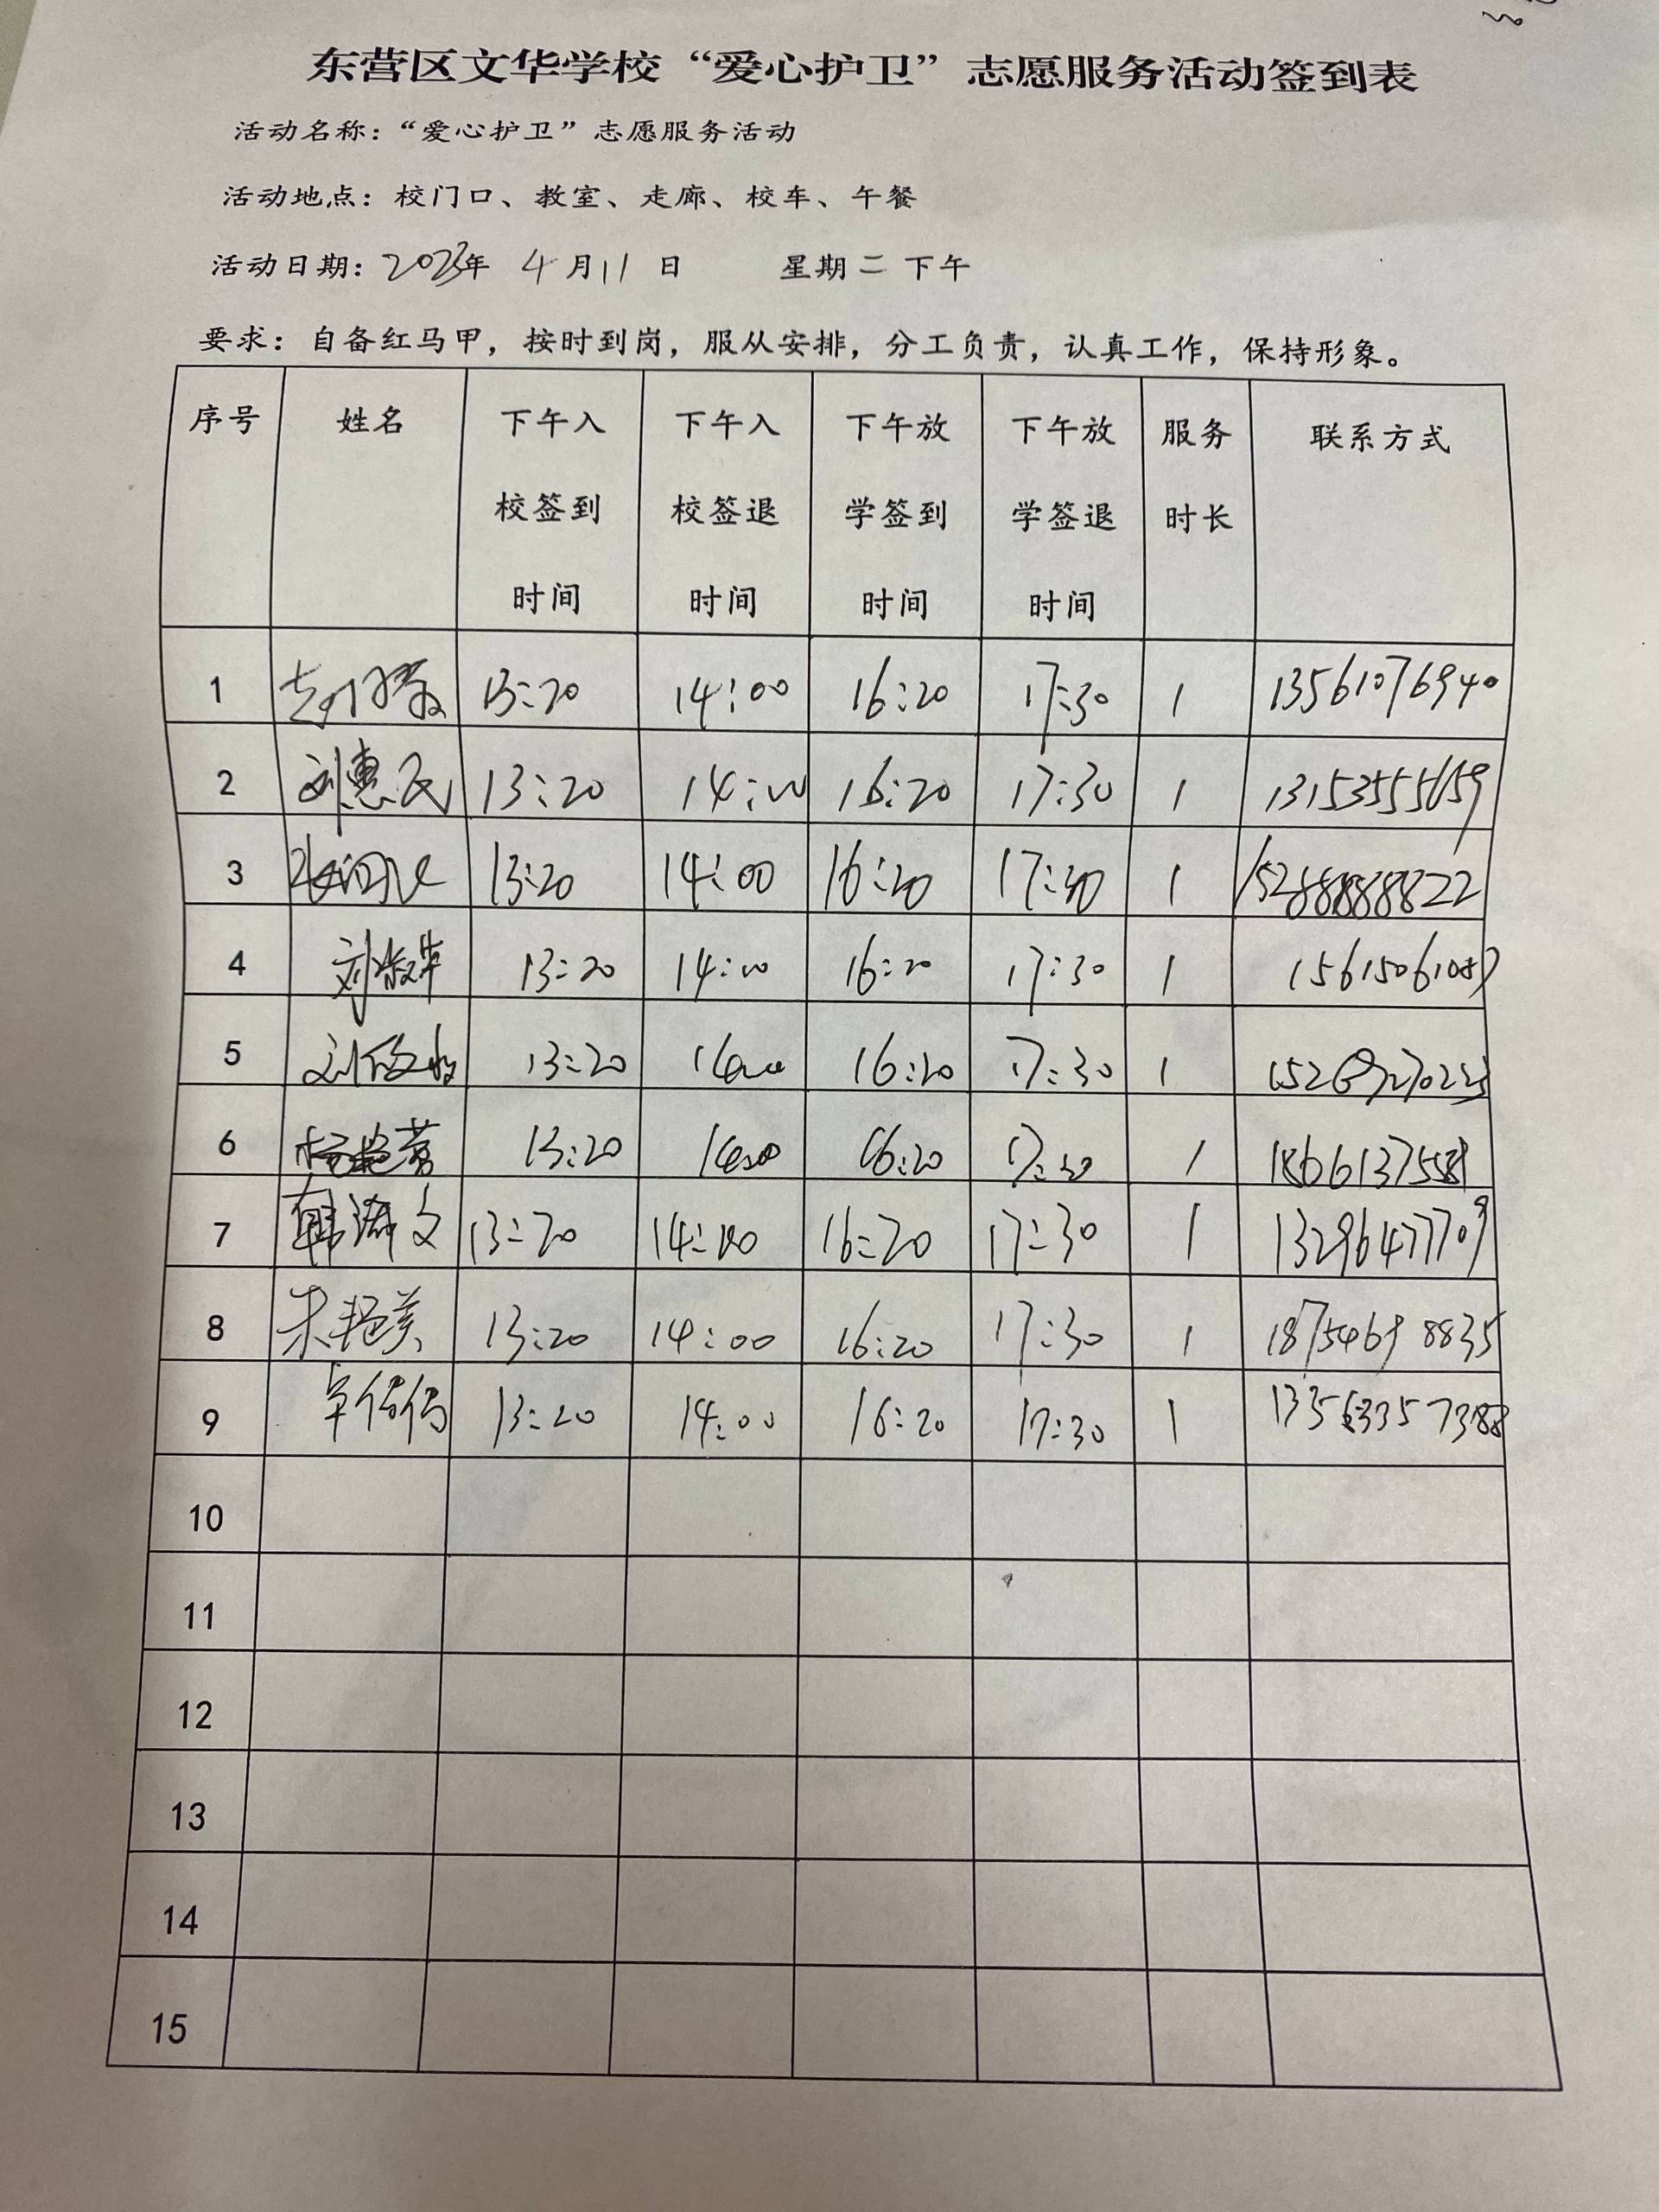 东营区文华学校“爱心护卫”志愿服务活动签到表
活动名称：“爱心护卫”志愿服务活动
活动地点：校门口、教室、走廊、校车、午餐
活动日期：2023年 4月11日 星期二 下午
要求：自备红马甲，按时到岗，服从安排，分工负责，认真工作，保持形象。
序号 姓名 下午入校签到时间 下午入校签退时间 下午放学签到时间 下午放学签退时间 服务时长 联系方式
1 13:20 14:00 16:20 17:30 1 13561076940
2 刘惠民 13:20 14:00 16:20 17:30 1 13153555659
3 13:20 14:00 16:20 17:30 1 15288888822
4 13:20 14:00 16:20 17:30 1
5 13:20 16:20 17:30 1
6 13:20 16:20 17:30 1
7 13:20 14:00 16:20 17:30 1 13296477709
8 朱艳美 13:20 14:00 16:20 17:30 1 18754698835
9 13:20 14:00 16:20 17:30 1
10
11
12
13
14
15